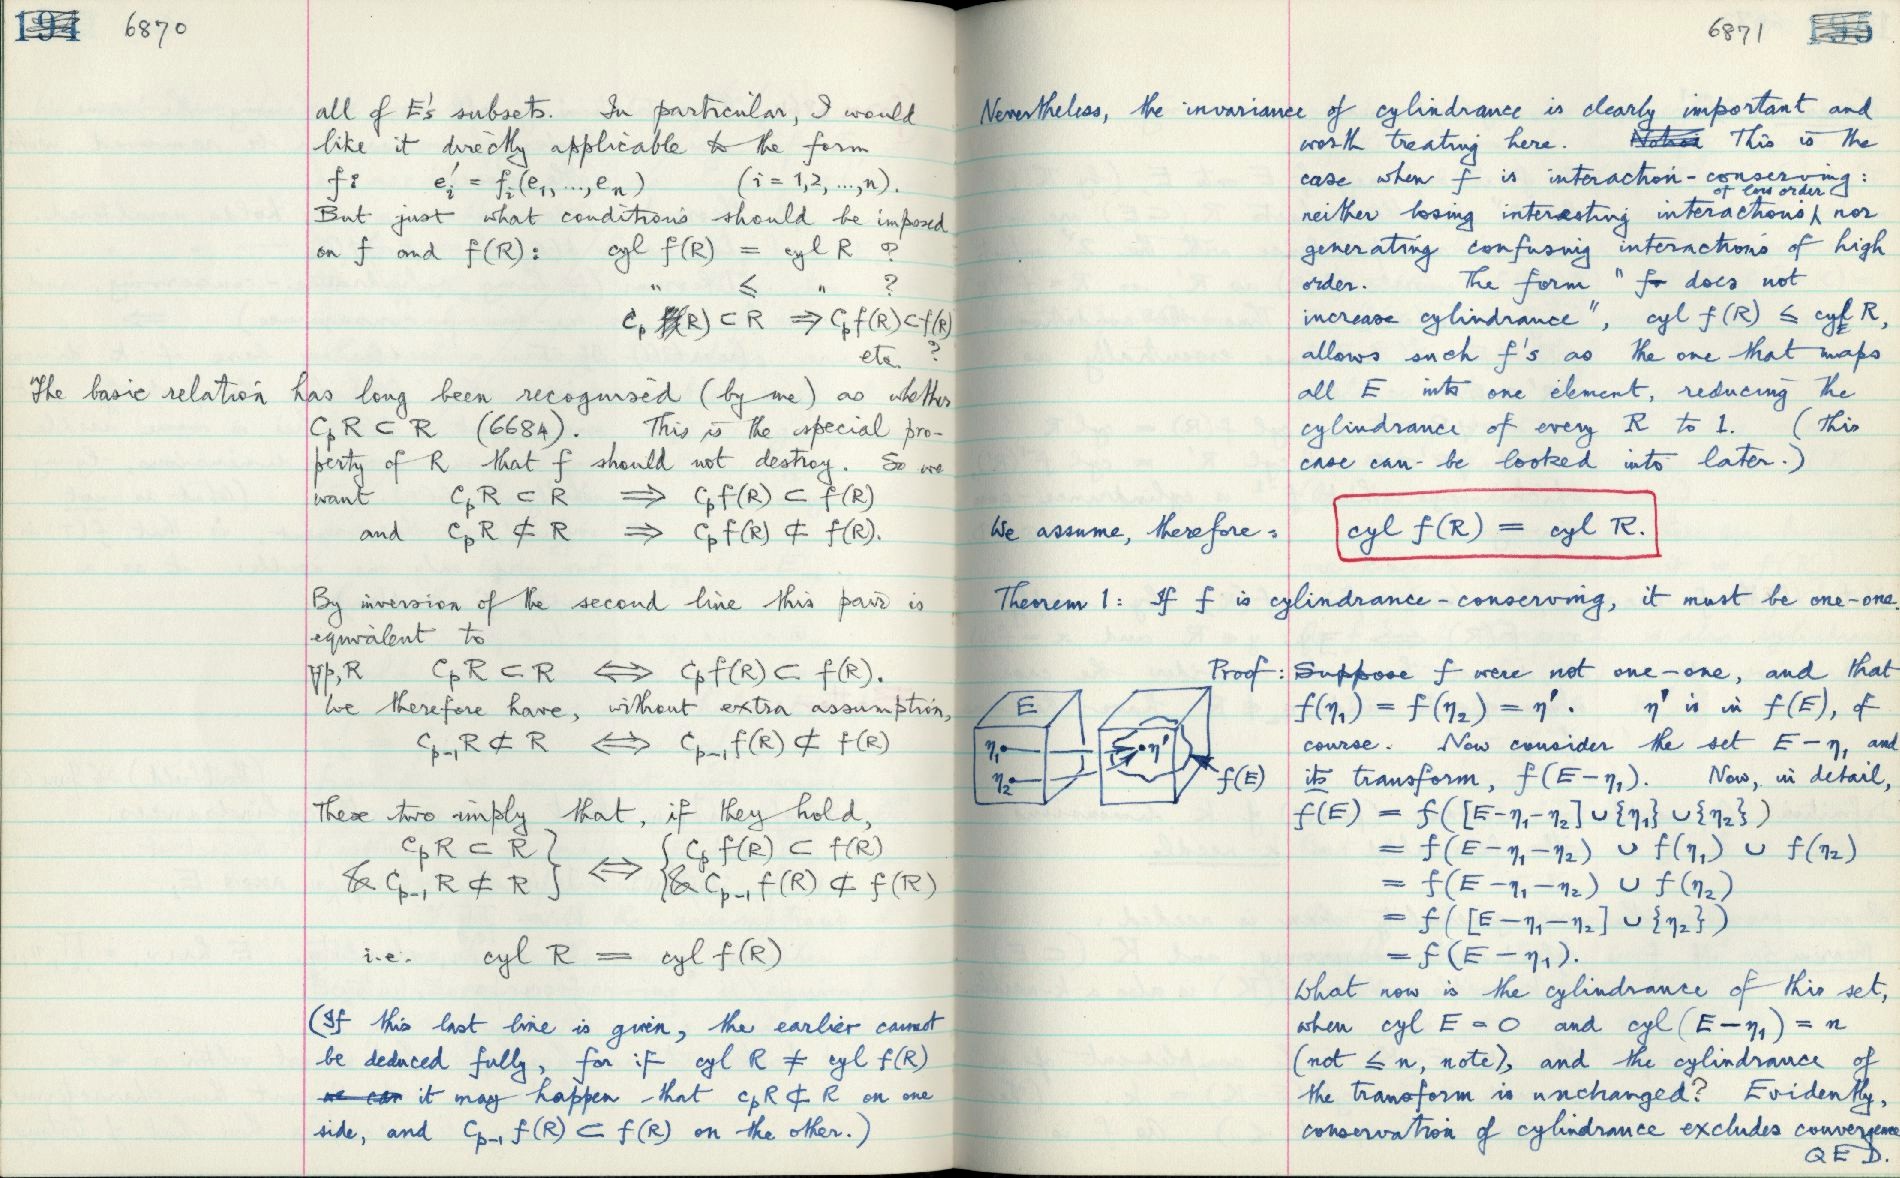 194 6870
all of E's subsets. In particular, I would
like it directly applicable to the form
f: e'ᵢ = fᵢ(e₁, ..., eₙ) (i = 1,2, ..., n).
But just what conditions should be imposed
on f and f(R): cyl f(R) = cyl R ?
" ≤ " ?
Cₚ (R) ⊂ R ⇒ Cₚf(R) ⊂ f(R)
etc. ?
The basic relation has long been recognised (by me) as whether
CₚR ⊂ R (6684). This is the special pro-
perty of R that f should not destroy. So we
want CₚR ⊂ R ⇒ Cₚf(R) ⊂ f(R)
and CₚR ⊄ R ⇒ Cₚf(R) ⊄ f(R).
By inversion of the second line this pair is
equivalent to
∀p,R CₚR ⊂ R ⇔ Cₚf(R) ⊂ f(R).
We therefore have, without extra assumption,
Cₚ₋₁R ⊄ R ⇔ Cₚ₋₁f(R) ⊄ f(R)
These two imply that, if they hold,
CₚR ⊂ R } ⇔ { Cₚ f(R) ⊂ f(R)
& Cₚ₋₁R ⊄ R } { & Cₚ₋₁f(R) ⊄ f(R)
i.e. cyl R = cyl f(R)
(If this last line is given, the earlier cannot
be deduced fully, for if cyl R ≠ cyl f(R)
we can it may happen that CₚR ⊄ R on one
side, and Cₚ₋₁f(R) ⊂ f(R) on the other.)
6871 195
Nevertheless, the invariance of cylindrance is clearly important and
worth treating here. This is the
case when f is interaction-conserving:
of low order
neither losing interesting interactions, nor
generating confusing interactions of high
order. The form "f does not
increase cylindrance", cyl f(R) ≤ cyl R,
allows such f's as the one that maps
all E into one element, reducing the
cylindrance of every R to 1. (This
case can be looked into later.)
We assume, therefore: cyl f(R) = cyl R.
Theorem 1: If f is cylindrance-conserving, it must be one-one.
Proof: Suppose f were not one-one, and that
f(η₁) = f(η₂) = η'. η' is in f(E), of
course. Now consider the set E-η₁ and
its transform, f(E-η₁). Now, in detail,
f(E) = f([E-η₁-η₂] ∪ {η₁} ∪ {η₂})
= f(E-η₁-η₂) ∪ f(η₁) ∪ f(η₂)
= f(E-η₁-η₂) ∪ f(η₂)
= f([E-η₁-η₂] ∪ {η₂})
= f(E-η₁).
E
η₁
η₂
η'
f(E)
What now is the cylindrance of this set,
when cyl E = 0 and cyl(E-η₁) = n
(not ≤ n, note), and the cylindrance of
the transform is unchanged? Evidently,
conservation of cylindrance excludes convergence
QED.